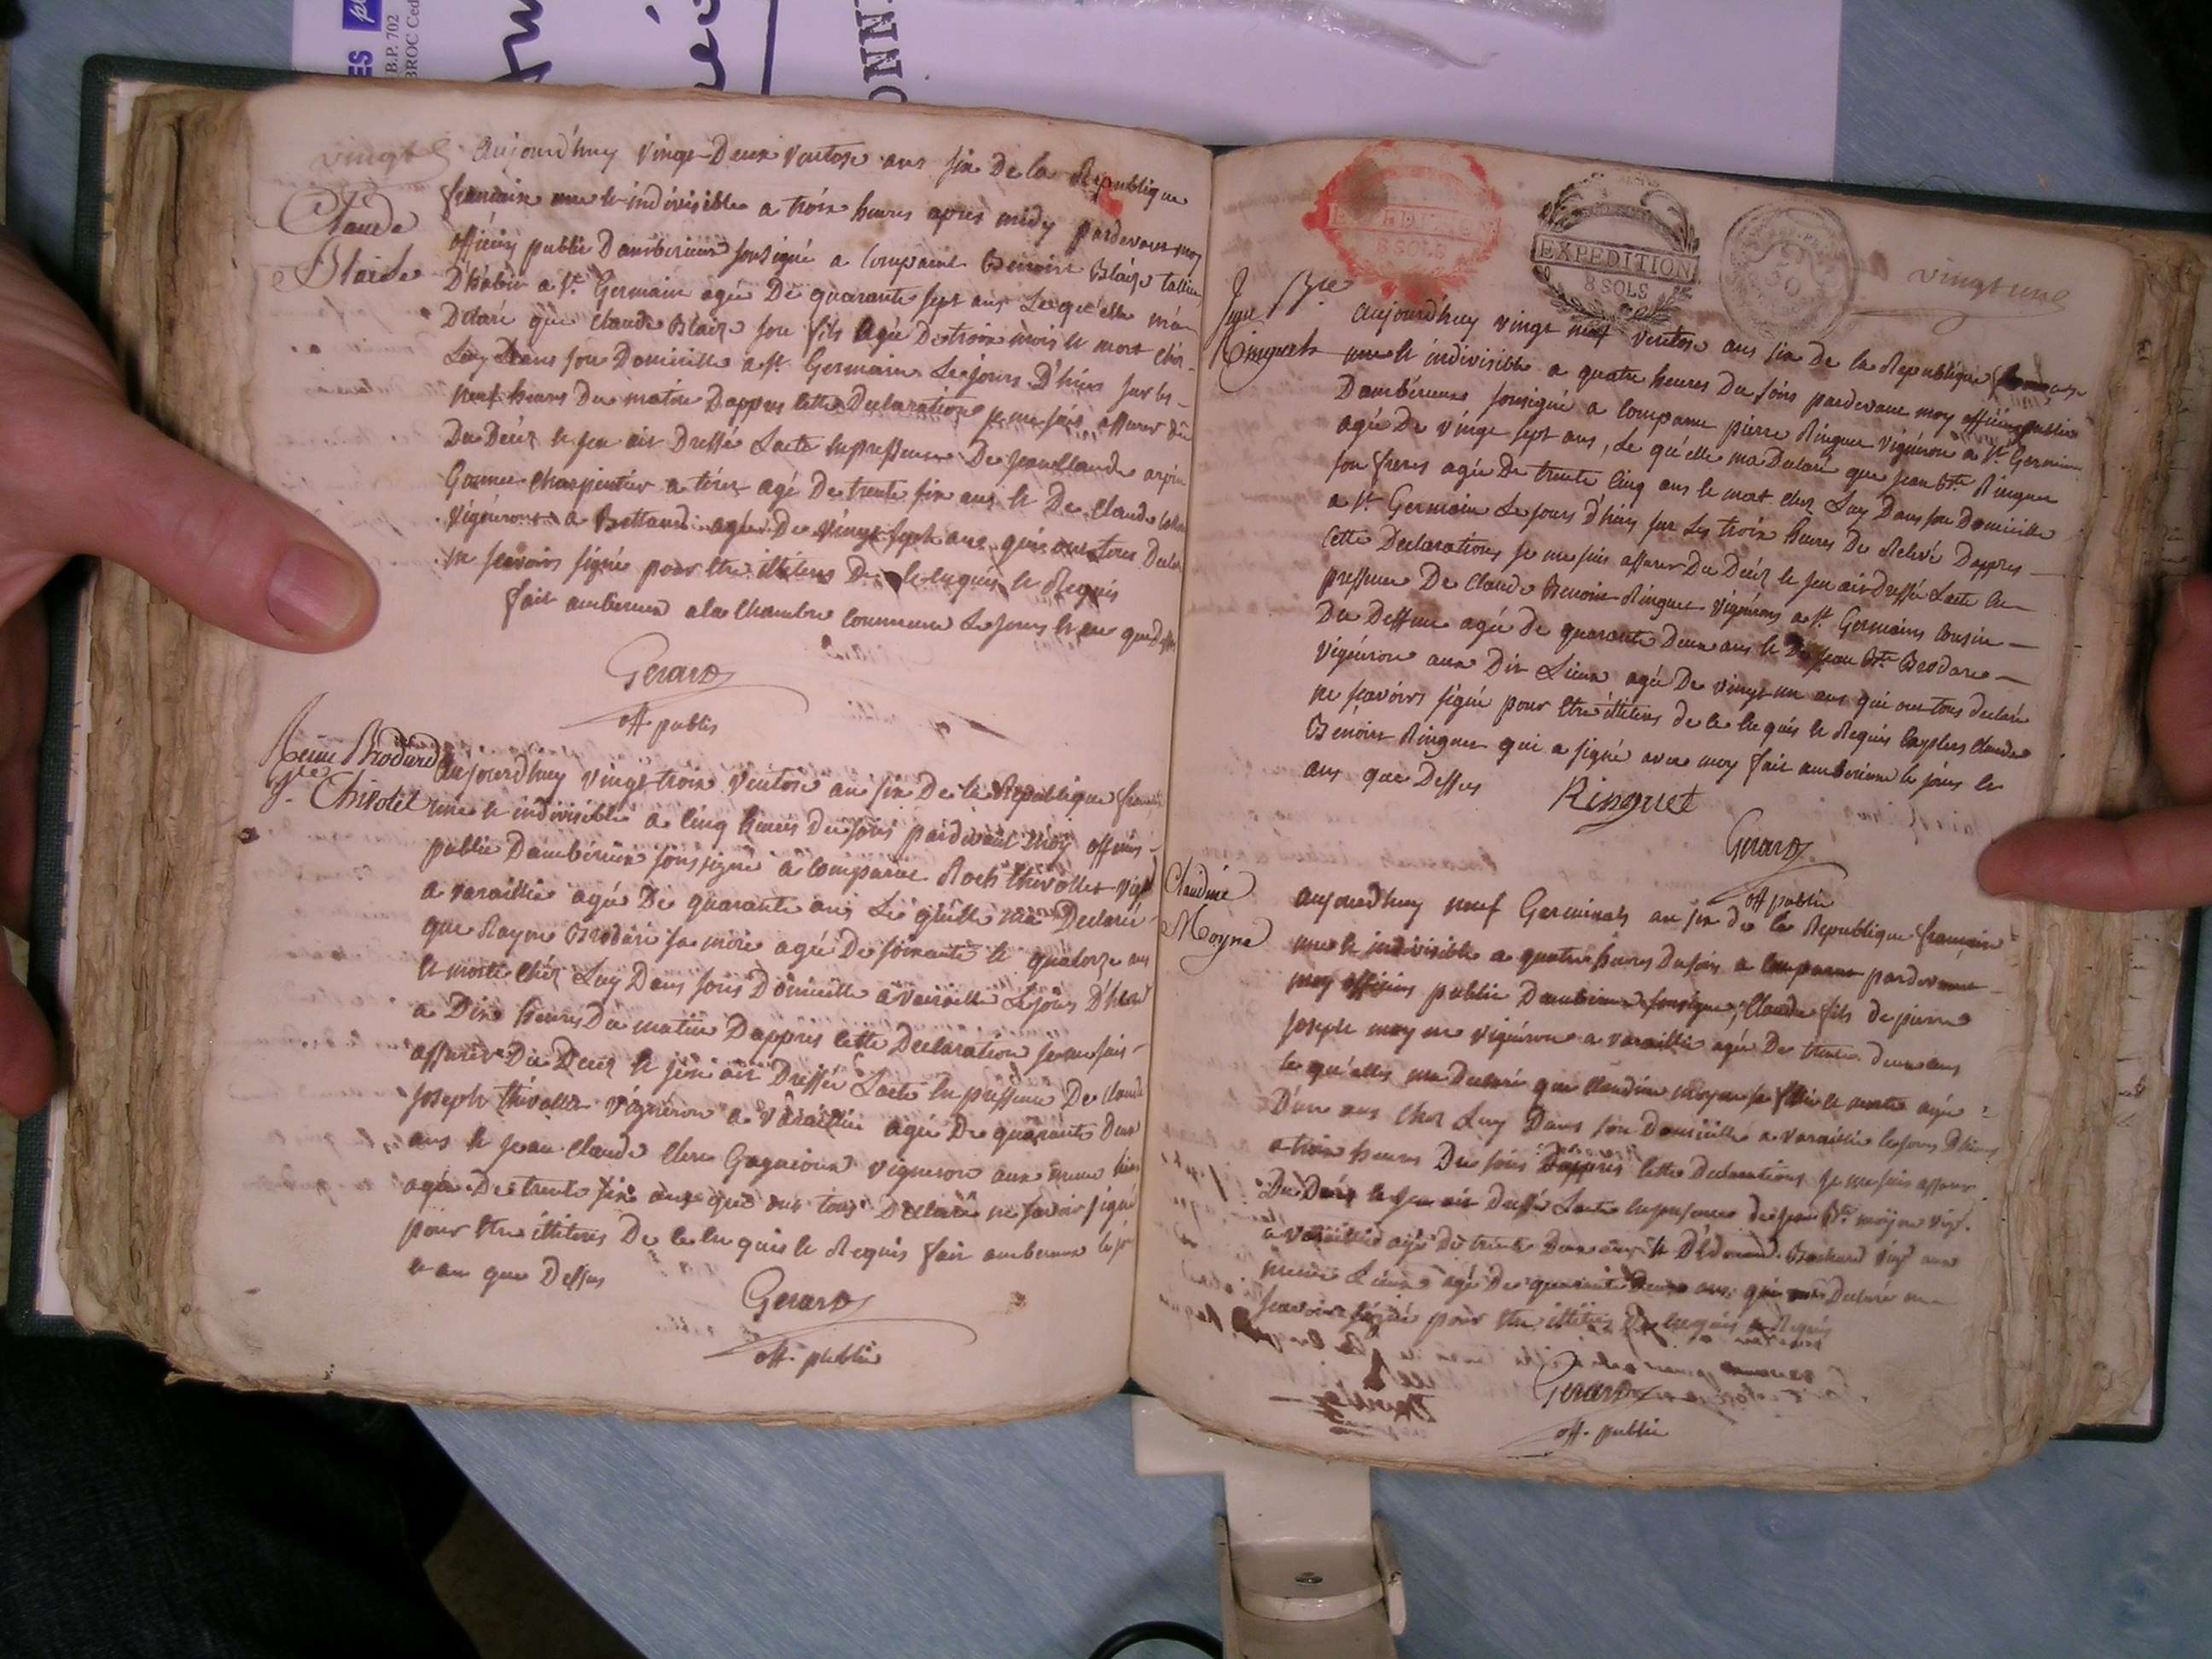 ES
B.P. 702
BROC Ced
vingt
Aujourd'huy vingt Deux ventose ans six De la Republique
francaise une et indivisible a trois heures apres midy pardevant moy
officiey public Damberieux sousigné a comparut Benoit Blaise
D'habit a St. Germain agée De quarante sept ans Lequ'elle m'a
Declaré que Claude Blaize son fils agée De trois mois et mort chez
Luy Dans son Domicille a St. Germain Le jours D'hier sur les
neuf heures Du matin Dappres cette Declaration je me suis assurer
Du Décéz et jen ait Dressé Lacte en pressence De jean Claude
charpentier a agé De trente six ans et De Claude
vigneront a Bettand agée De vingt sept ans qui ont tous
ne scavoirs signé pour etre illiteres De ce enquis et Requis
fait amberieux a la Chambre commune Le jours et an que Dessus
Gerard
off. public
Claude
Blaise
Reine Brodard
Ve. Thivolet
Aujourdhuy vingt trois ventose an six De la Republique
une et indivisible a cinq heures Du soirs pardevant moy officier
public Damberieux soussigné a comparut Roch thivollet
a varaillie agée De quarante ans Le quelle ma Declaré
que Rayne Brodard sa mere agée De soixante et quatorze ans
et morte chéz Luy Dans sons Domicille a varaille Le jours D'hier
a Dix heures Du matin Dappres cette Declaration je me suis
assurer Du Décéz et jen ait Dressée Lacte en pressence De Claude
joseph thivollet vigneron a varaillie agée De quarante Deux
ans et jean Claude vigneron aux meme
agée De trente six ans que ont tous Declaré ne savoir signe
pour etre illiteres De ce enquis et Requis fait amberieux le
et an que Dessus
Gerard
off. public
EXPEDITION
8 SOLS
EXPEDITION
8 SOLS
vingt une
Jean Bte
Ringuet
Aujourd'huy vingt neuf ventose ans six De la Republique
une et indivisible a quatre heures Du soirs pardevant moy officier public
Damberieux sousigné a comparut pierre Ringuet vigneron a St. Germain
agée De vingt sept ans, Le qu'elle ma Declaré que jean Bte Ringuet
son freres agée De trente cinq ans et mort chez Luy Dans son Domicille
a St. Germain Le jours d'hier sur les trois heures De Relevé Dappres
cette Declarations je me suis assurer Du Décéz et jen ait Dressé Lacte en
pressence De Claude Benoit Ringuet vignerons a St. Germains cousin
Du Deffunt agée de quarante Deux ans et De jean Bte Brodard
vigneron aux Dit Lieux agée De vingt un ans qui ont tous declaré
ne scavoirs signé pour etre illiteres de ce enquis et Requis Claude
Benoit Ringuet qui a signé avec moy fait amberieux le jours et
ans que Dessus
Ringuet
Gerard
off public
Claudine
Moyne
aujourdhuy neuf Germinals an six de la Republique francaise
une et indivisible a quatre heures Du soirs a comparut pardevant
moy officiers public Damberieux sousigné, Claude fils de pierre
joseph moyne vigneron a varaillie agée De trente deux ans
le qu'elles ma Declaré que Claudine moyne sa fillie et morte agée
D'un ans chez Luy Dans son Domicille a varaillie le jours D'hiers
a trois heures Du soirs Dappres cette Declarations je me suis assurer
Du Décéz et jen ait Dressé Lacte en presence de jean Bte moyne
a varaillie agé De trente Deux ans et D'Edouard Bochard aux
meme Lieux agée De quarante Deux ans, qui ont Declaré ne
scavoirs signé pour etre illiteres De enquis et Requis
Gerard
off. public